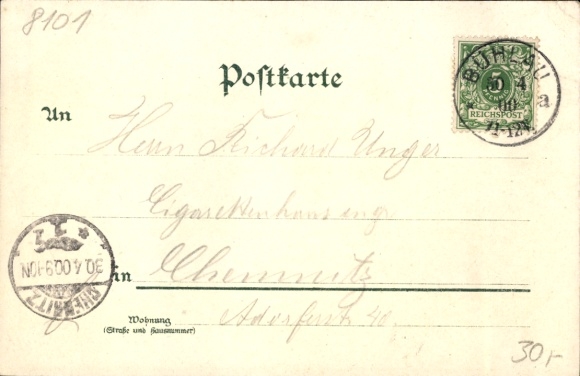 8101
Postkarte
BÜHLAU
30 4
00
11-12V.
a
5
REICHSPOST
An
Herrn Richard Unger
Cigarettenhaus
in Chemnitz
30.4.00.9-10N
CHEMNITZ
Wohnung
(Straße und Hausnummer)
Adorferstr 40.
30,-